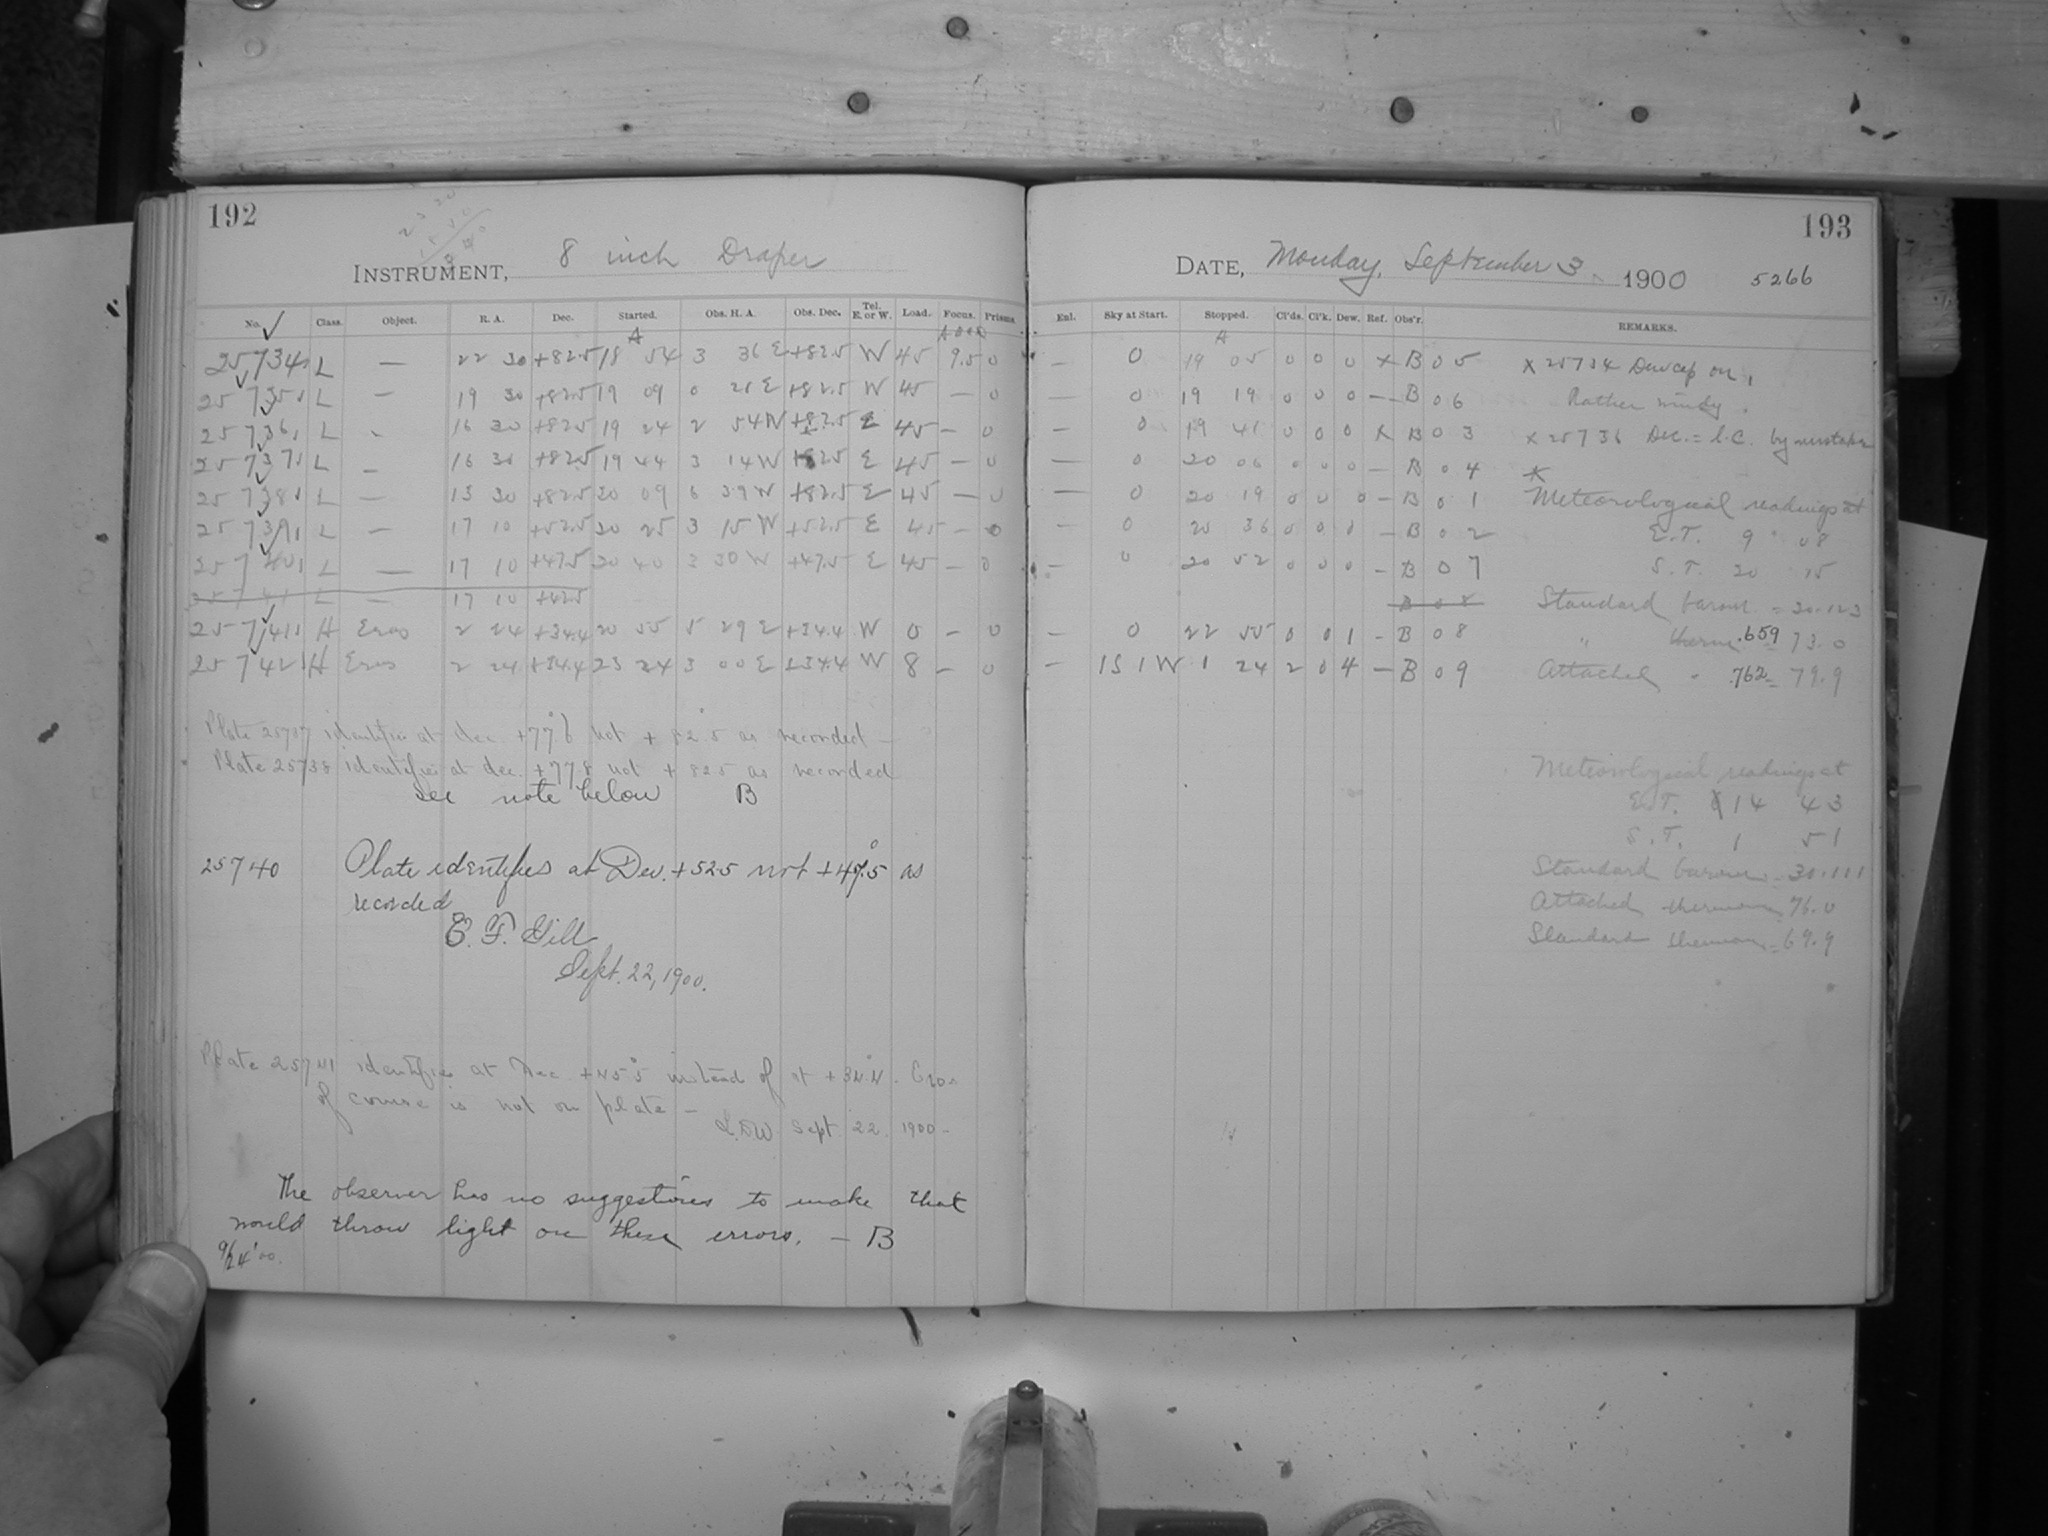 192
INSTRUMENT, 8 inch Draper
No. Class. Object. R. A. Dec. Started. Obs. H. A. Obs. Dec. Tel. E. or W. Load. Focus. Prisms
25734 L — 22 30 +82.5 18 54 3 36 E +82.5 W 45 9.5 0
25735 L — 19 30 +82.5 19 09 0 21 E +82.5 W 45 — 0
25736 L - 16 30 +82.5 19 24 2 54 W +82.5 E 45 — 0
25737 L — 16 30 +82.5 19 44 3 14 W +82.5 E 45 — 0
25738 L — 13 30 +82.5 20 09 6 39 W +82.5 E 45 — 0
25739 L — 17 10 +52.5 20 25 3 15 W +52.5 E 45 — 0
25740 L — 17 10 +47.5 20 40 3 30 W +47.5 E 45 — 0
25741 L — 17 10 +42.5
25741 H Eros 2 24 +34.4 20 55 5 29 E +34.4 W 0 — 0
25742 H Eros 2 24 +34.4 23 24 3 00 E +34.4 W 8 — 0
Plate 25737 identifies at dec +77°.6 not +82°.5 as recorded —
Plate 25738 identifies at dec. +77.8 not +82.5 as recorded
see note below B
25740 Plate identifies at Dec. +52.5 not +47°.5 as
recorded
E. F. Gill
Sept. 22, 1900.
Plate 25741 identifies at Dec +45°.5 instead of at +34°.4. Eros
of course is not on plate —
L.D.W. Sept. 22. 1900 —
The observer has no suggestions to make that
would throw light on these errors. — B
9/24 '00.
193
DATE, Monday, September 3 1900 5266
Enl. Sky at Start. Stopped. Cl'ds. Cl'k. Dew. Ref. Obs'r. REMARKS.
— 0 19 05 0 0 0 x B 05 x 25734 Dewcap on,
— 0 19 19 0 0 0 — B 06 Rather windy.
— 0 19 41 0 0 0 x B 03 x 25736 Dec. = l.C. by mistake
— 0 20 06 0 0 0 — B 04 x
— 0 20 19 0 0 0 — B 01 Meteorological readings at
— 0 20 36 0 0 0 — B 02 E.T. 9 08
— 0 20 52 0 0 0 — B 07 S.T. 20 15
B 08 Standard barom. = 30.123
— 0 22 55 0 0 1 - B 08 " therm .659 = 73.0
— 1S 1W 1 24 2 0 4 — B 09 Attached " .762 = 79.9
Meteorological readings at
E.T. 14 43
S.T. 1 51
Standard barom = 30.111
Attached thermom 76.0
Standard thermom = 69.9